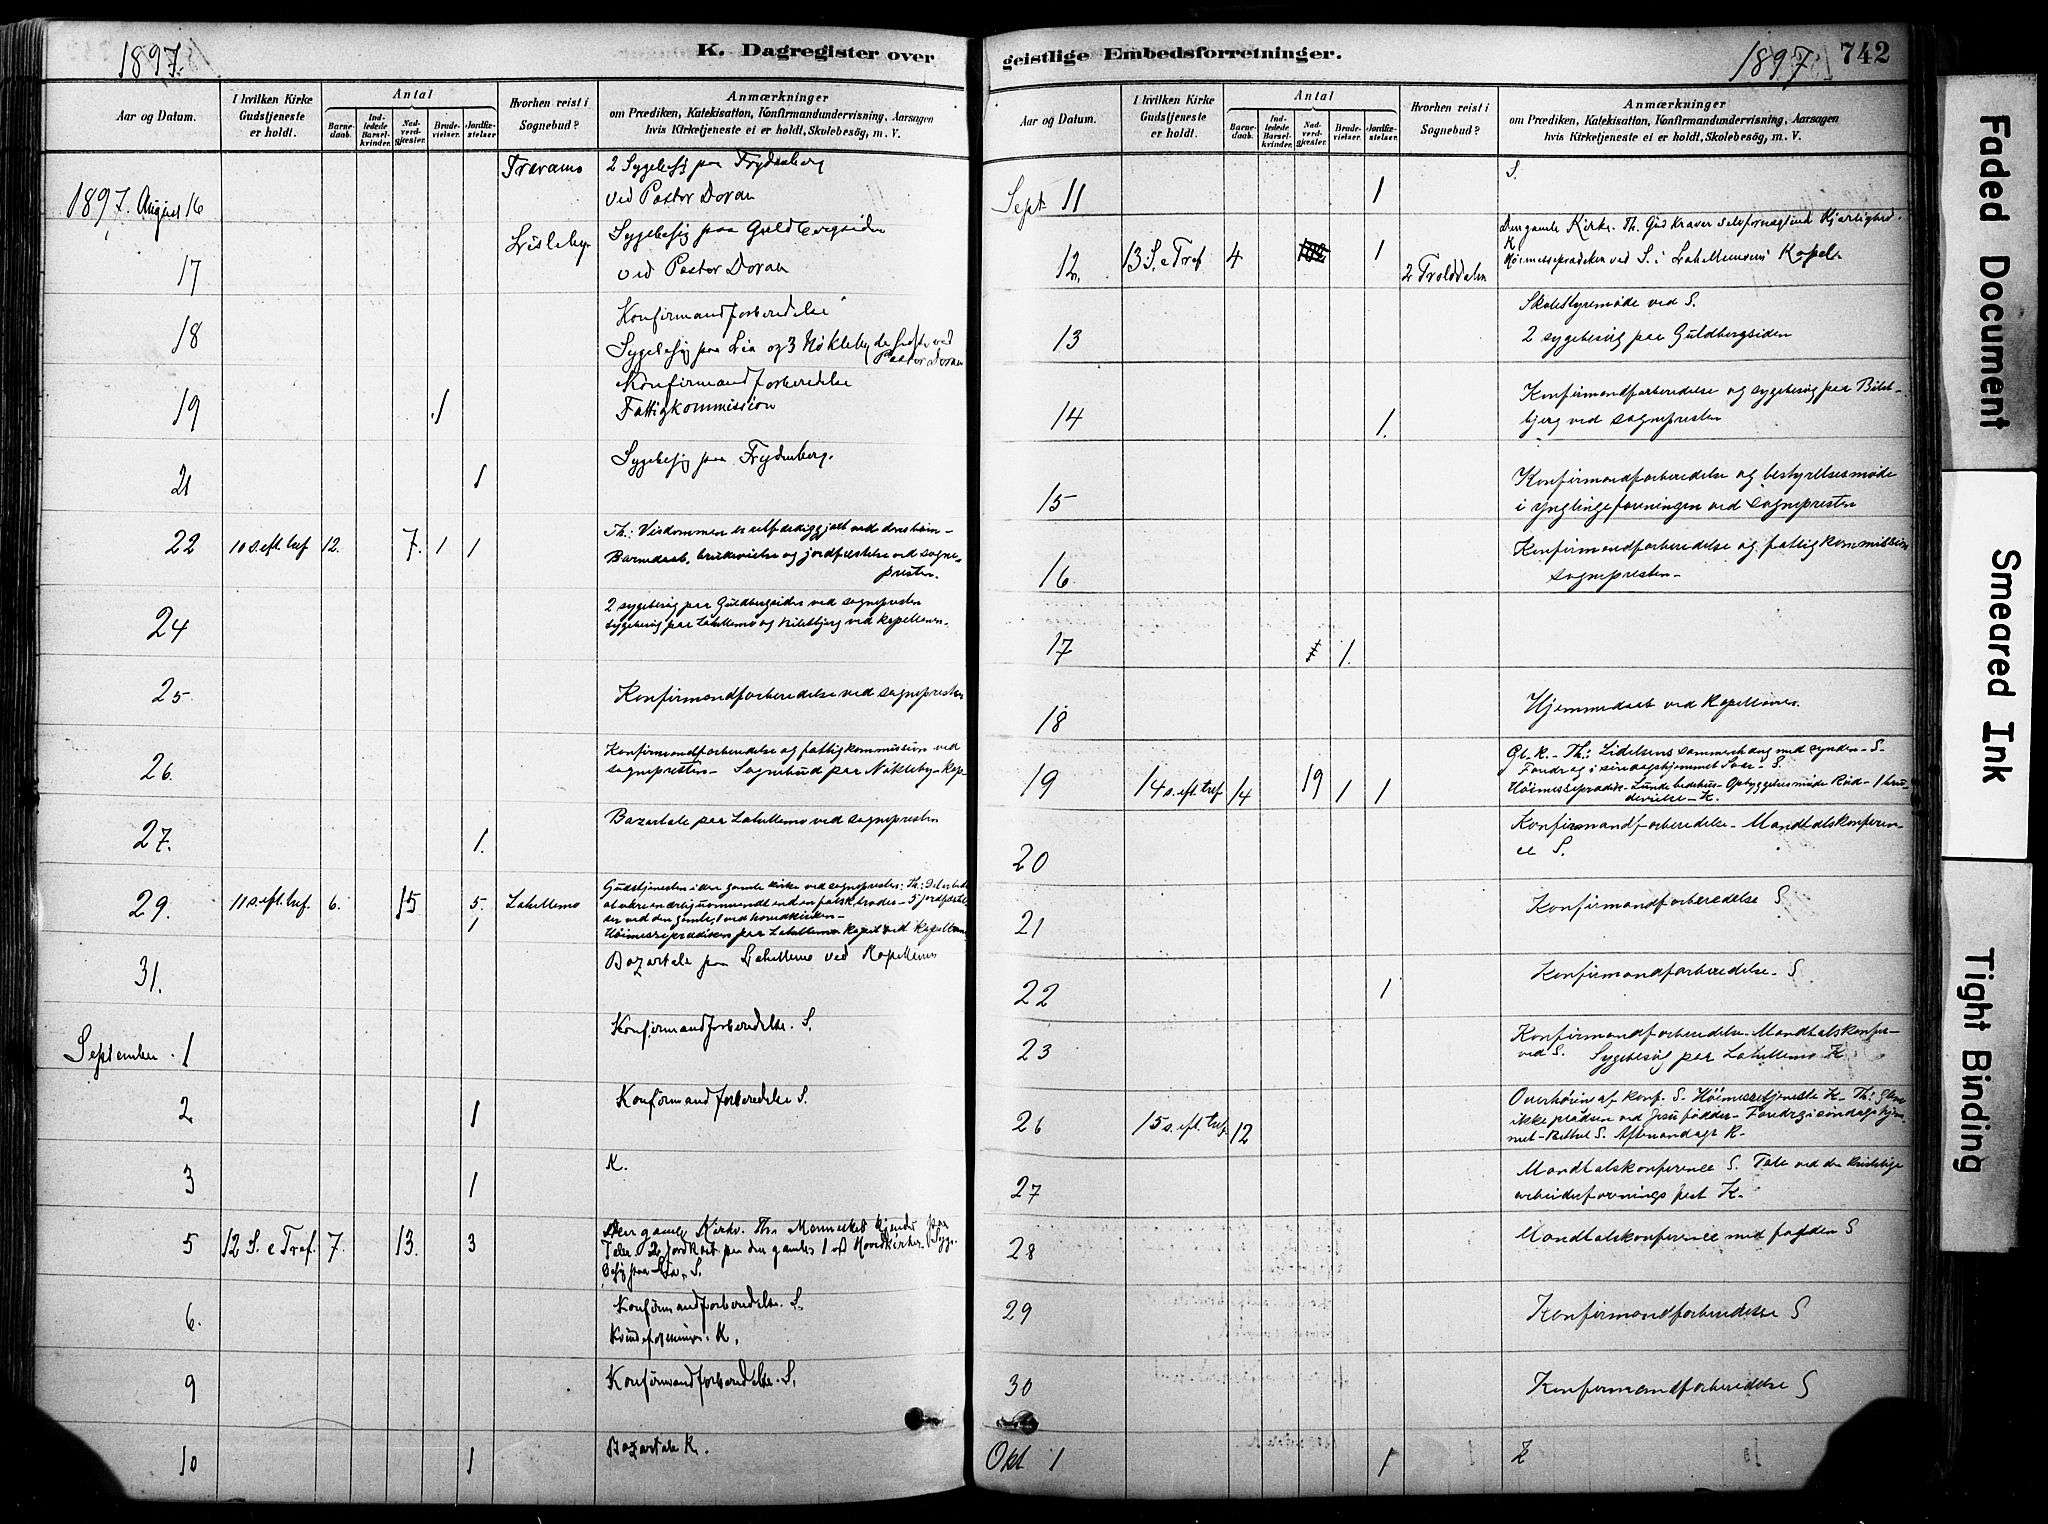 1897.
K. Dagregister over
Aar og Datum.
I hvilken Kirke Gudstjeneste er holdt.
Antal
Barnedaab.
Indledede Barselkvinder.
Nadverdgjester.
Brudevielser.
Jordfæstelser
Hvorhen reist i Sognebud?
Anmærkninger
om Prædiken, Katekisation, Konfirmandundervisning, Aarsagen
hvis Kirketjeneste ei er holdt, Skolebesög, m. V.
Traramo 2 Sygebesøg paa Frydenberg
1897. August 16 ved Pastor Doran
Lisleby Sygebesøg paa Guldbergsiden
17 ved Pastor Doran
18 Konfirmandforberedelse
Sygebesøg paa Lia og 3 Nøkleby
Pastor Doran
19 1 Konfirmandforberedelse
Fattigkommission
21 1 Sygebesøg paa Frydenberg.
22 10 s. eft. tref. 12. 7. 1 1 Th.: Visdommen er retfærdiggjort ved dens børn -
Barnedaab, brudevielse og jordfæstelse ved sogne-
presten.
24 2 sygebesøg paa Guldbergsiden ved sognepresten
sygebesøg paa Lahellemo og Bilitbjerg ved Kapellanen.
25 Konfirmandforberedelse ved sognepresten
26. Konfirmandforberedelse og fattigkommission ved
sognepresten - Sognebud paa Nøkleby - kap-
27. 1. Bazartale paa Lahellemo ved sognepresten
29. 11 s. eft. tref. 6. 15 5. 1 Lahellemo Gudstjenesten i den gamle kirke ved sognepresten: Th:
Høimesseprædiken paa Lahellemo kapel ved kapellanen
31. Bazartale paa Lahellemo ved Kapellanen
September 1 Konfirmandforberedelse. S.
2 1 Konfirmandforberedelse S.
3 1 K.
5 12 S. e Tref. 7. 13. 3 Den gamle Kirke. Th: Mennesket kjendes paa
Tale. 2 Jordkast paa den gamle 1 ved Hovedkirken. Syge-
besøg paa Lia. S.
6. Konfirmandforberedelse. S.
Kvindeforening. K.
9 Konfirmandforberedelse. S.
10 1 Bazartale K.
geistlige Embedsforretninger.
1897
742
Aar og Datum.
I hvilken Kirke Gudstjeneste er holdt.
Antal
Barnedaab.
Indledede Barselkvinder.
Nadverdgjester.
Brudevielser.
Jordfæstelser.
Hvorhen reist i Sognebud?
Anmærkninger
om Prædiken, Katekisation, Konfirmandundervisning, Aarsagen
hvis Kirketjeneste ei er holdt, Skolebesög, m. V.
Sept 11 1 S.
12. 13 S. e Tref 4 1 2 Trolddalen Den gamle Kirke. Th. Gud kræver selvfornægtende Kjærlighed.
K
Høimesseprædiken ved S. i Lahellemoens Kapel.
13 Skolestyremøde ved S.
2 sygebesøg paa Guldbergsiden
14 1. Konfirmandforberedelse og sygebesøg paa Bilit-
bjerg ved sognepresten
15 Konfirmandforberedelse og bestyrelsesmøde
i ynglingeforeningen ved sognepresten
16 Konfirmandforberedelse og fattigkommission
sognepresten -
17 1.
18 Hjemmedaab ved Kapellanen.
19 14 s. eft. tref. 14 19 1 1 Gl. K. - Th: Lidelsens sammenhæng med synden - S.
Foredrag i søndagshjemmet - S.
Høimesseprædik - Lunde bedehus - Opbyggelsesmøde Rød - 1 bru-
devielse - K.
20 Konfirmandforberedelse - Mandtalskonferen-
ce S.
21 Konfirmandforberedelse S
22 1 Konfirmandforberedelse. S
23 Konfirmandforberedelse - Mandtalskonfer-
ved S. Sygebesøg paa Lahellemo K.
26 15 s. eft. tref. 12 Overhøring af konf. S. Høimessetjeneste K - Th: Glem
ikke pladsen ved Jesu fødder - Foredrag i søndagshjem-
met - Bethel S. Aftenandagt K.
27 Mandtalskonference S. Tale ved den kristelige
arbeiderforenings fest K.
28 Mandtalskonference med fogden S
29 Konfirmandforberedelse S
30 Konfirmandforberedelse S
Okt 1 1
Faded Document
Smeared Ink
Tight Binding